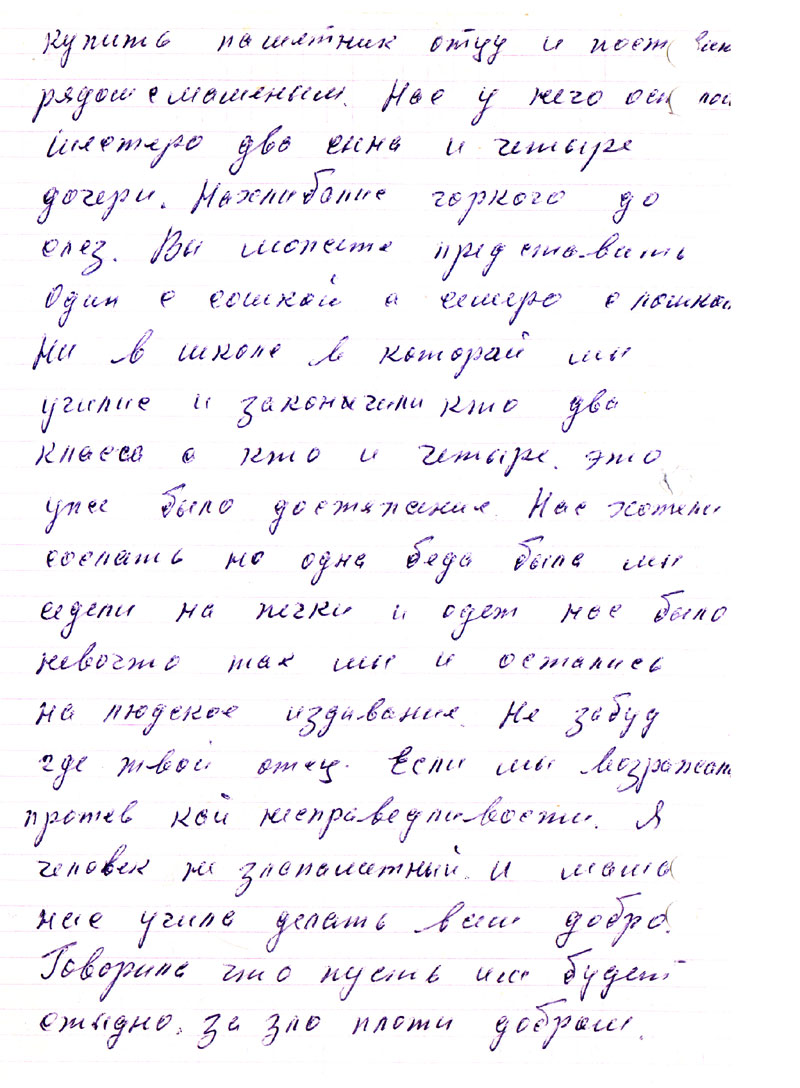 купить памятник отцу и пост вин
рядом с маминым. Нас у него ост лос
шестеро два сина и четыре
дочери. Нахлибалис горкого до
слез. Ви можете представить
Один с сошкой а семеро с ложкой
Ни в школе в которай ми
училис и закончили кто два
класса а кто и четыре. это
уже было достяжение. Нас хотели
сослать но одна беда была ми
седели на печки и одет нас было
невочто так ми и остались
на людское издивание. Не забуд
где твой отец. Если ми возражали
против кой несправедливости. Я
человек не злопаметный. И мама
нас учила делать всем добро.
Говорила что пусть им будет
стыдно. за зло плати добром.